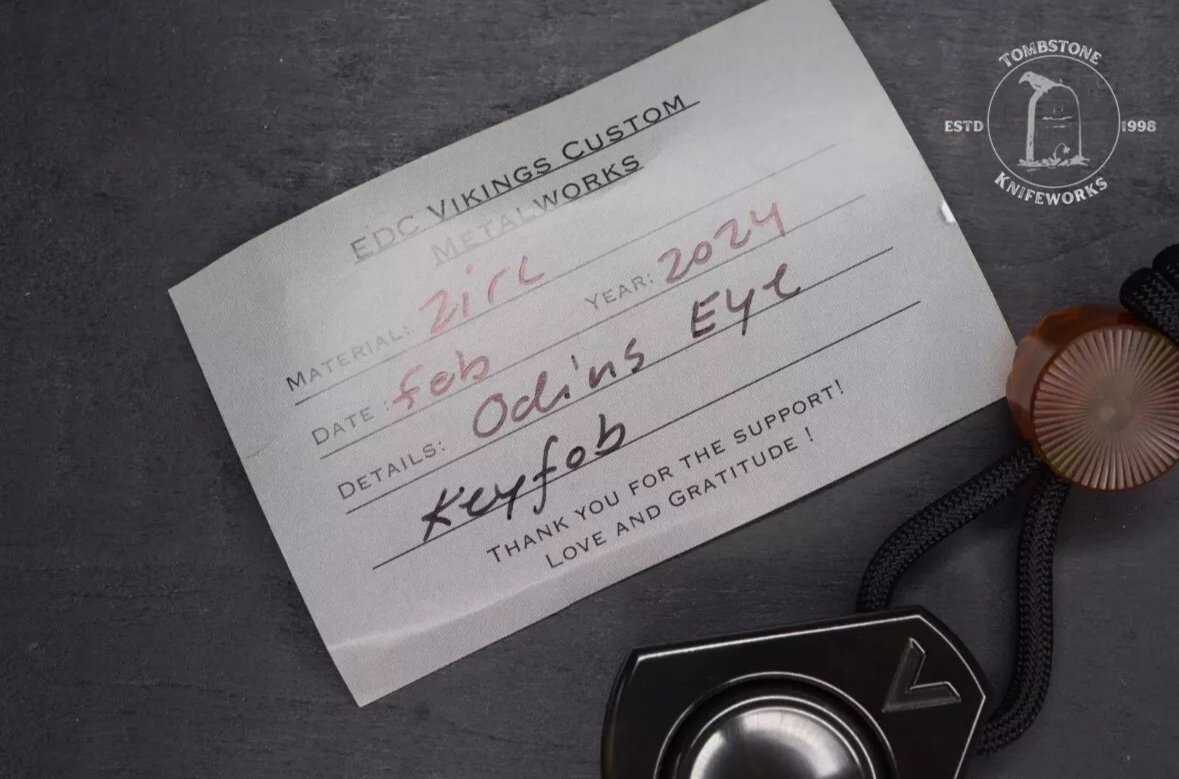 EDC VIKINGS CUSTOM
METALWORKS
MATERIAL: Zirc
DATE: feb YEAR: 2024
DETAILS: Odins Eye
Keyfob
THANK YOU FOR THE SUPPORT!
LOVE AND GRATITUDE !
TOMBSTONE
ESTD 1998
KNIFEWORKS